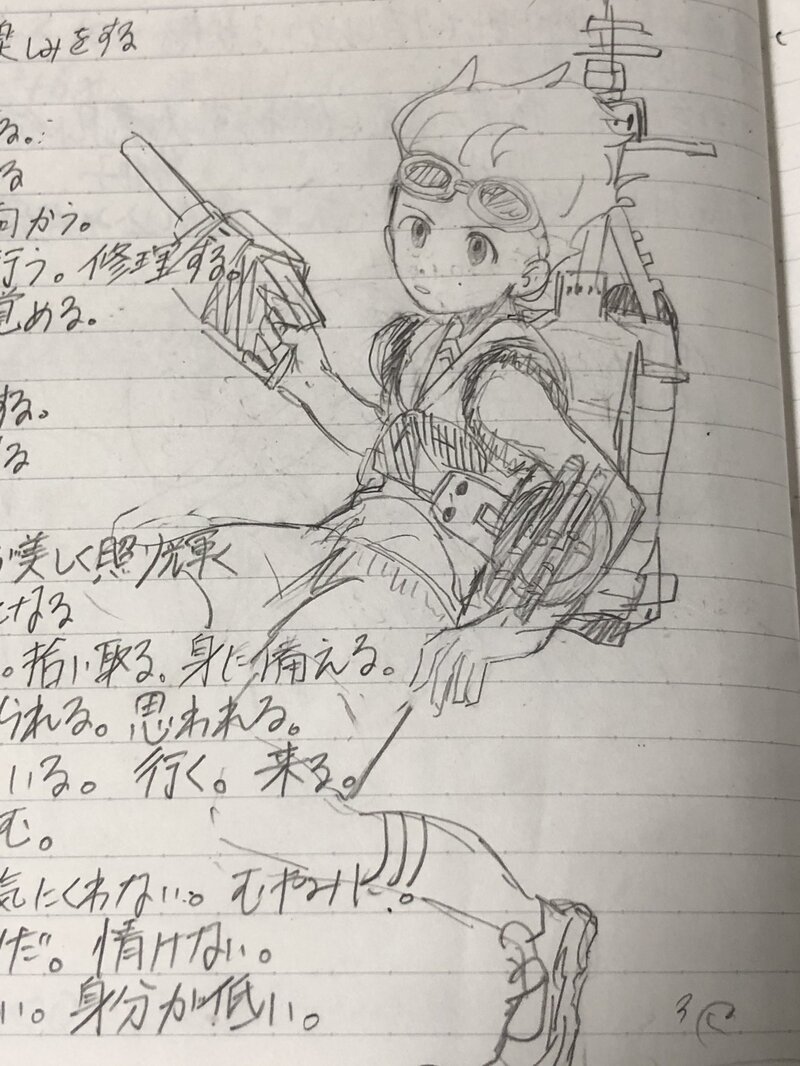 楽しみをする
る。
る
向かう。
行う。修理する。
覚める。
する。
る
美しく照り輝く
になる
。拾い取る。身に備える。
られる。思われる。
いる。行く。来る。
む。
気にくわない。むやみに。
だ。情けない。
い。身分が低い。